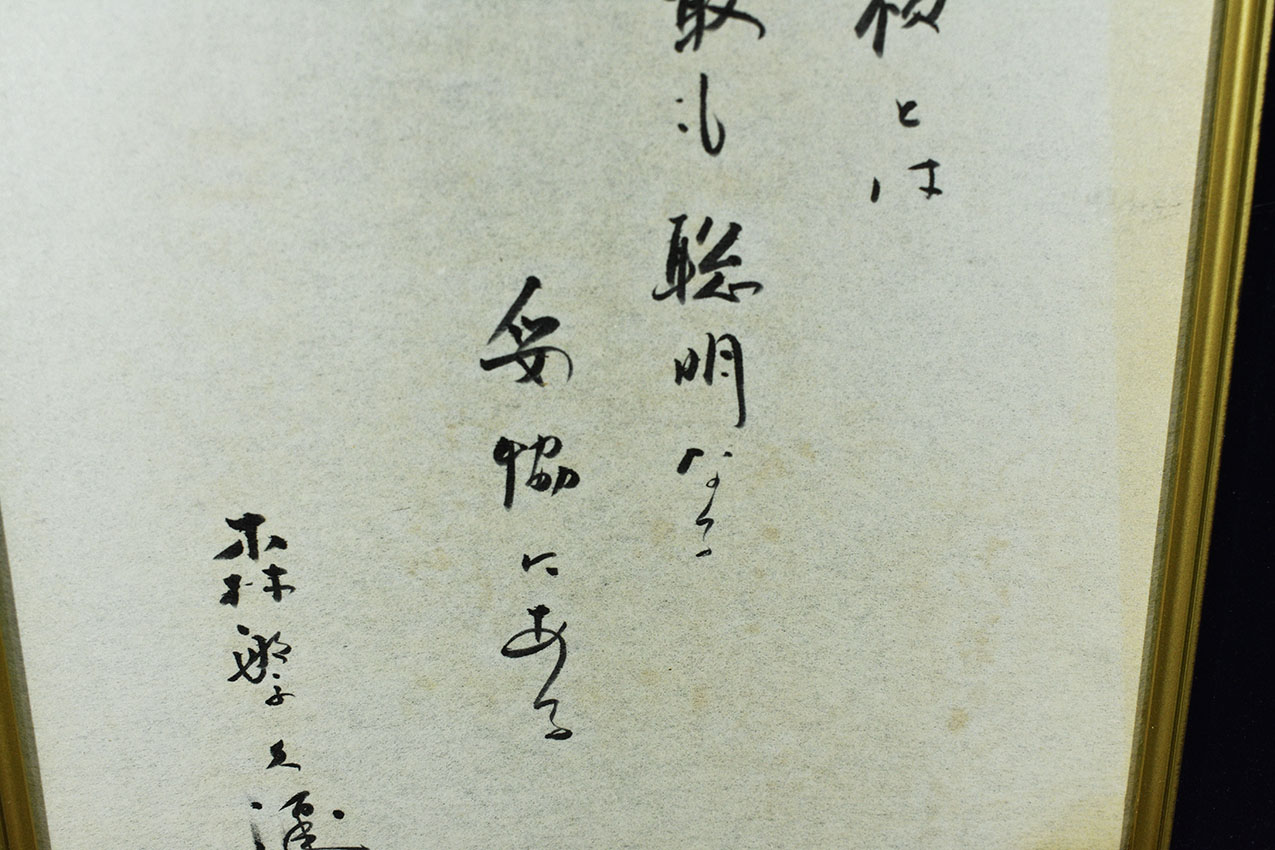 とは
最も聡明なる
妥協にある
森繁久彌